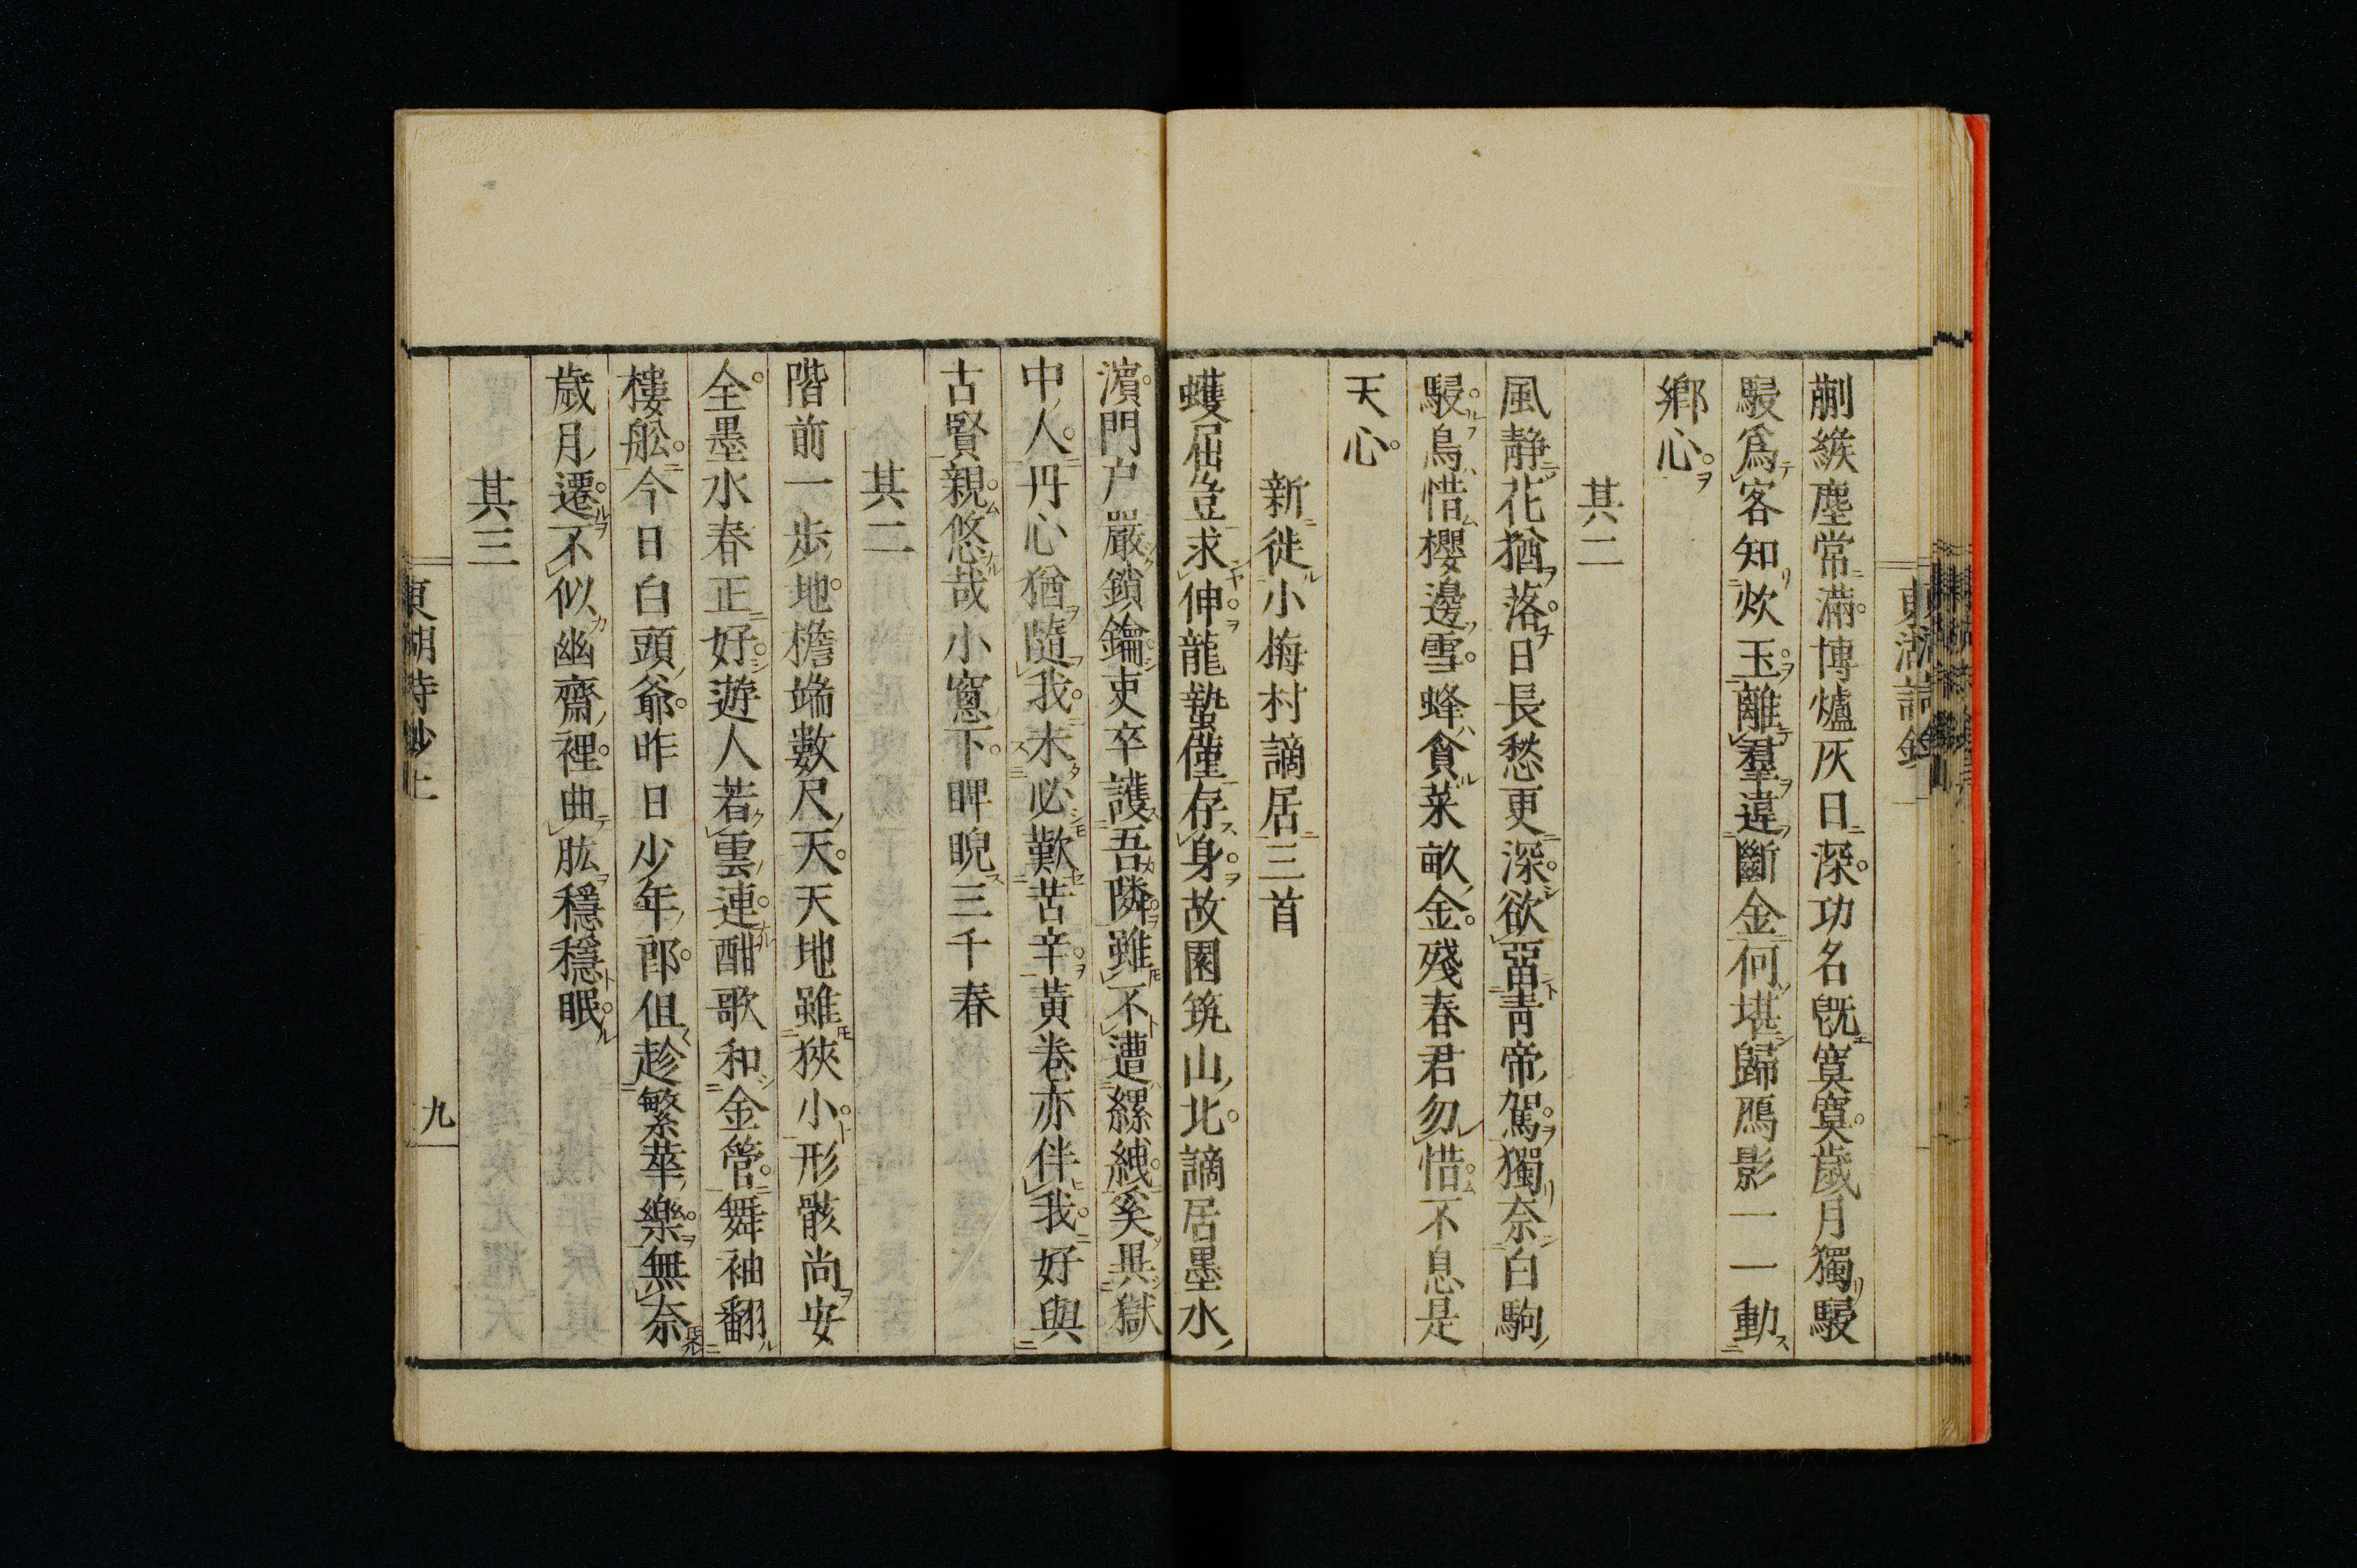 蒯緱塵常滿博爐灰日深功名既寞寞歲月獨駸
駸爲客知炊玉離羣違斷金何堪歸鴈影一一動
鄉心
其二
風静花猶落日長愁更深欲畱青帝駕獨奈白駒
駸鳥惜櫻邊雪蜂貪菜畝金殘春君勿惜不息是
天心
新徙小梅村謫居三首
蠖屈豈求伸龍蟄僅存身故園筑山北謫居墨水
濵門户嚴鎖鑰吏卒護吾隣雖不遭縲紲奚異獄
中人丹心猶隨我未必歎苦辛黄卷亦伴我好與
古賢親悠哉小窻下睥睨三千春
其二
階前一歩地檐端數尺天天地雖狹小形骸尚安
全墨水春正好遊人若雲連酣歌和金管舞袖翻
樓舩今日白頭爺昨日少年郎但趁繁華樂無奈
歲月遷不似幽齋裡曲肱穩穩眠
其三
東湖詩鈔上
九